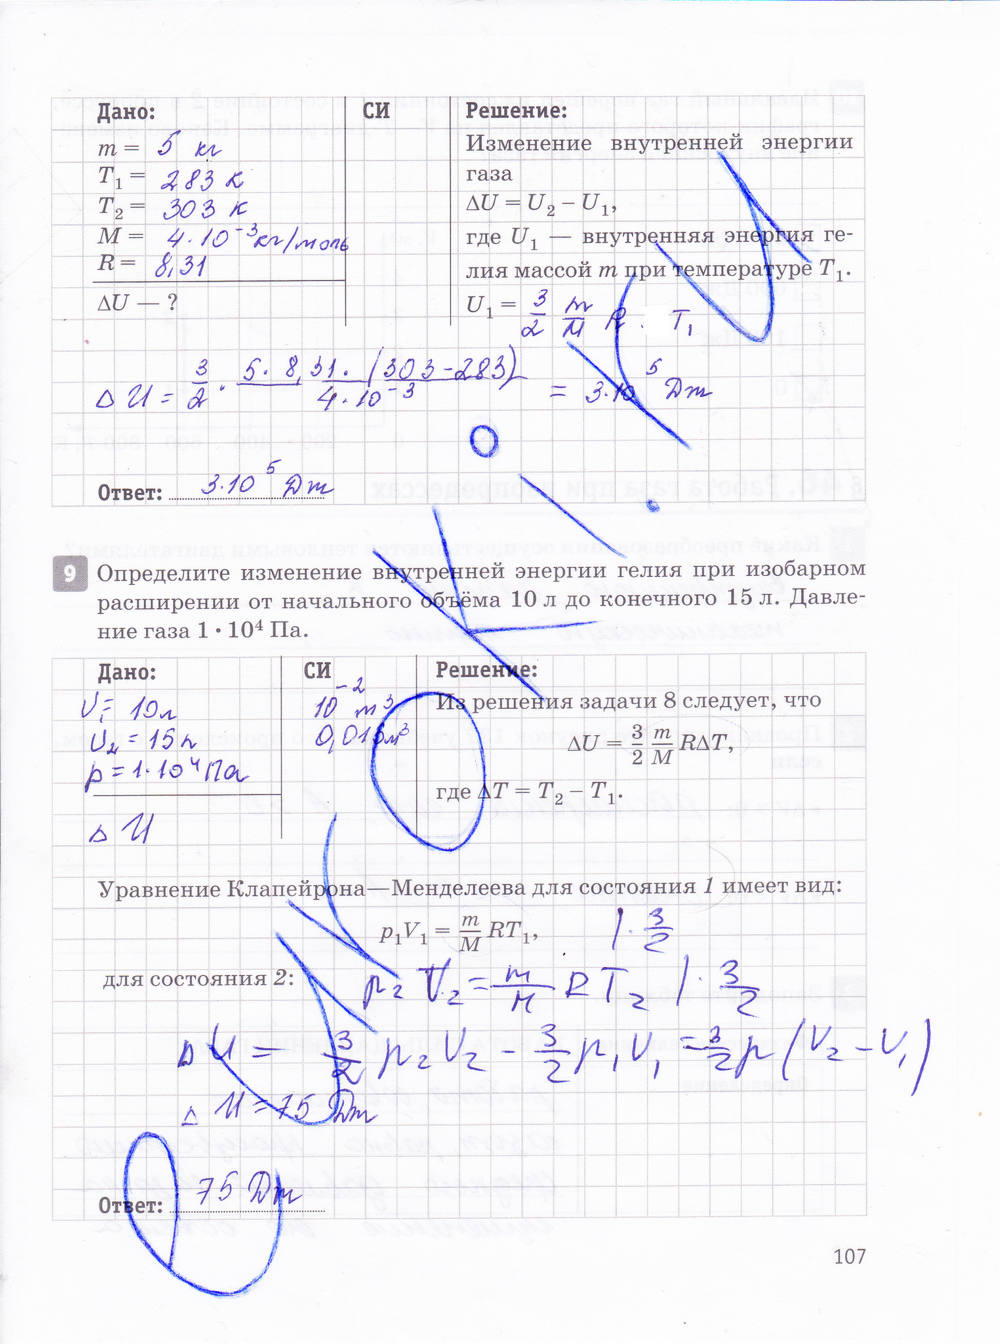 Дано: СИ Решение:
m = 5 кг
T₁ = 283 К
T₂ = 303 К
M = 4·10⁻³ кг/моль
R = 8,31
ΔU — ?
Изменение внутренней энергии
газа
ΔU = U₂ – U₁,
где U₁ — внутренняя энергия ге-
лия массой m при температуре T₁.
U₁ = 3/2 m/M R · T₁
ΔU = 3/2 · 5·8,31·(303-283)/4·10⁻³ = 3·10⁵ Дж
Ответ: 3·10⁵ Дж
9 Определите изменение внутренней энергии гелия при изобарном
расширении от начального объёма 10 л до конечного 15 л. Давле-
ние газа 1 • 10⁴ Па.
Дано: СИ Решение:
V₁ = 10 л 10⁻² м³
V₂ = 15 л 0,015 м³
p = 1·10⁴ Па
ΔU
Из решения задачи 8 следует, что
ΔU = 3/2 m/M RΔT,
где ΔT = T₂ – T₁.
Уравнение Клапейрона—Менделеева для состояния 1 имеет вид:
p₁V₁ = m/M RT₁, | · 3/2
для состояния 2: p₂V₂ = m/M RT₂ | · 3/2
ΔU = 3/2 p₂V₂ - 3/2 p₁V₁ = 3/2 p (V₂ - V₁)
ΔU = 75 Дж
Ответ: 75 Дж
107